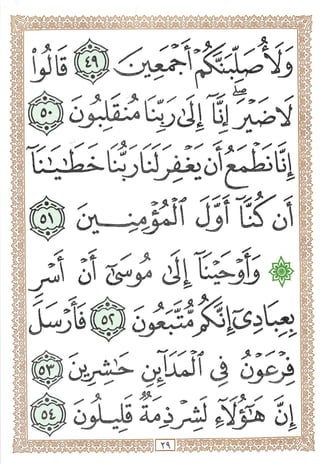 وَلَأُصَلِّبَنَّكُمْ أَجْمَعِينَ ﴿٤٩﴾ قَالُوا۟
لَا ضَيْرَ ۖ إِنَّآ إِلَىٰ رَبِّنَا مُنقَلِبُونَ ﴿٥٠﴾
إِنَّا نَطْمَعُ أَن يَغْفِرَ لَنَا رَبُّنَا خَطَـٰيَـٰنَآ
أَن كُنَّآ أَوَّلَ الْمُؤْمِنِينَ ﴿٥١﴾
۞ وَأَوْحَيْنَآ إِلَىٰ مُوسَىٰٓ أَنْ أَسْرِ
بِعِبَادِىٓ إِنَّكُم مُّتَّبَعُونَ ﴿٥٢﴾ فَأَرْسَلَ
فِرْعَوْنُ فِى الْمَدَآئِنِ حَـٰشِرِينَ ﴿٥٣﴾
إِنَّ هَـٰٓؤُلَآءِ لَشِرْذِمَةٌ قَلِيلُونَ ﴿٥٤﴾
٢٩